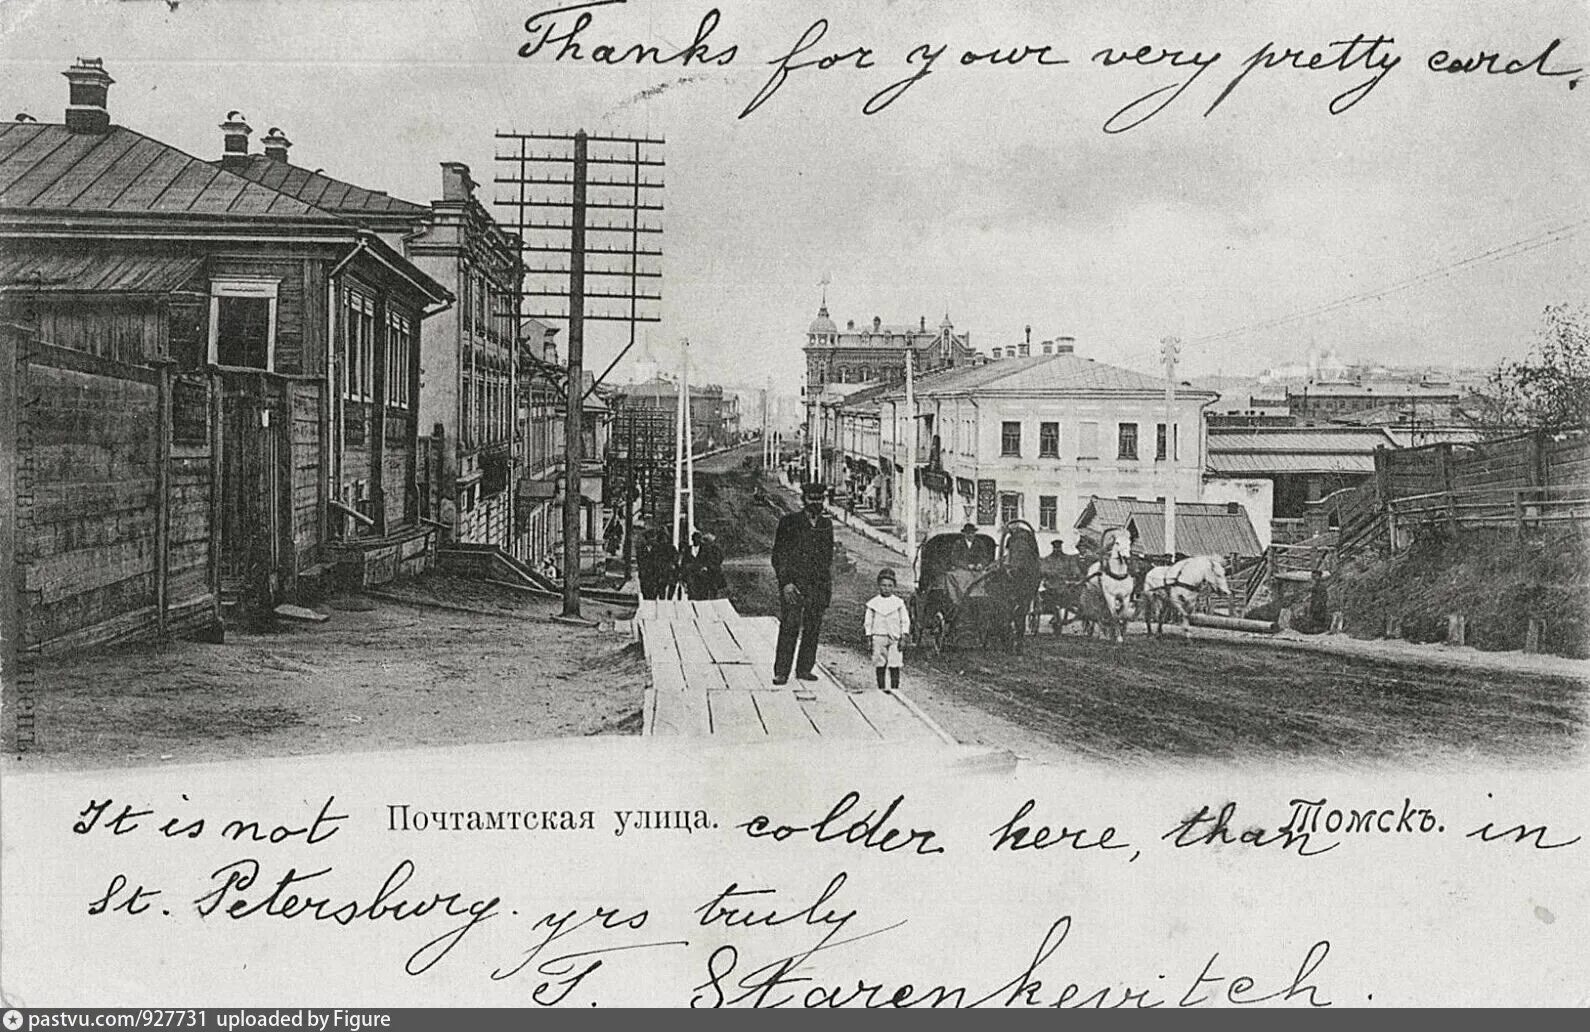 Thanks for your very pretty card.
It is not Почтамтская улица. colder here, than Томскъ. in
St. Petersburg. yrs truly
T. Starenkevitch.
pastvu.com/927731 uploaded by Figure